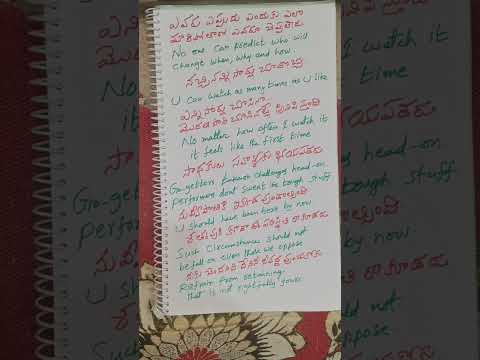 ఎవరు ఎప్పుడు ఎందుకు ఎలా
మారిపోతారో ఎవరూ చెప్పలేరు
No one can predict who will
change when, why and how.
నచ్చినన్ని సార్లు చూడొచ్చు
U can watch as many times as U like
ఎన్ని సార్లు చూసినా
మొదటి సారి చూసినట్లు
No matter how often I watch it
it feels like the first time
సాధకులు సవాళ్లకు భయపడరు
Go-getters embrace challenges head-on
performers dont sweat the tough stuff
U should have been here by now
శత్రువుకి కూడా ఈ పరిస్థితి రాకూడదు
Such Circumstances should not
befall on even those we oppose
Refrain from obtaining
that is not rightfully yours